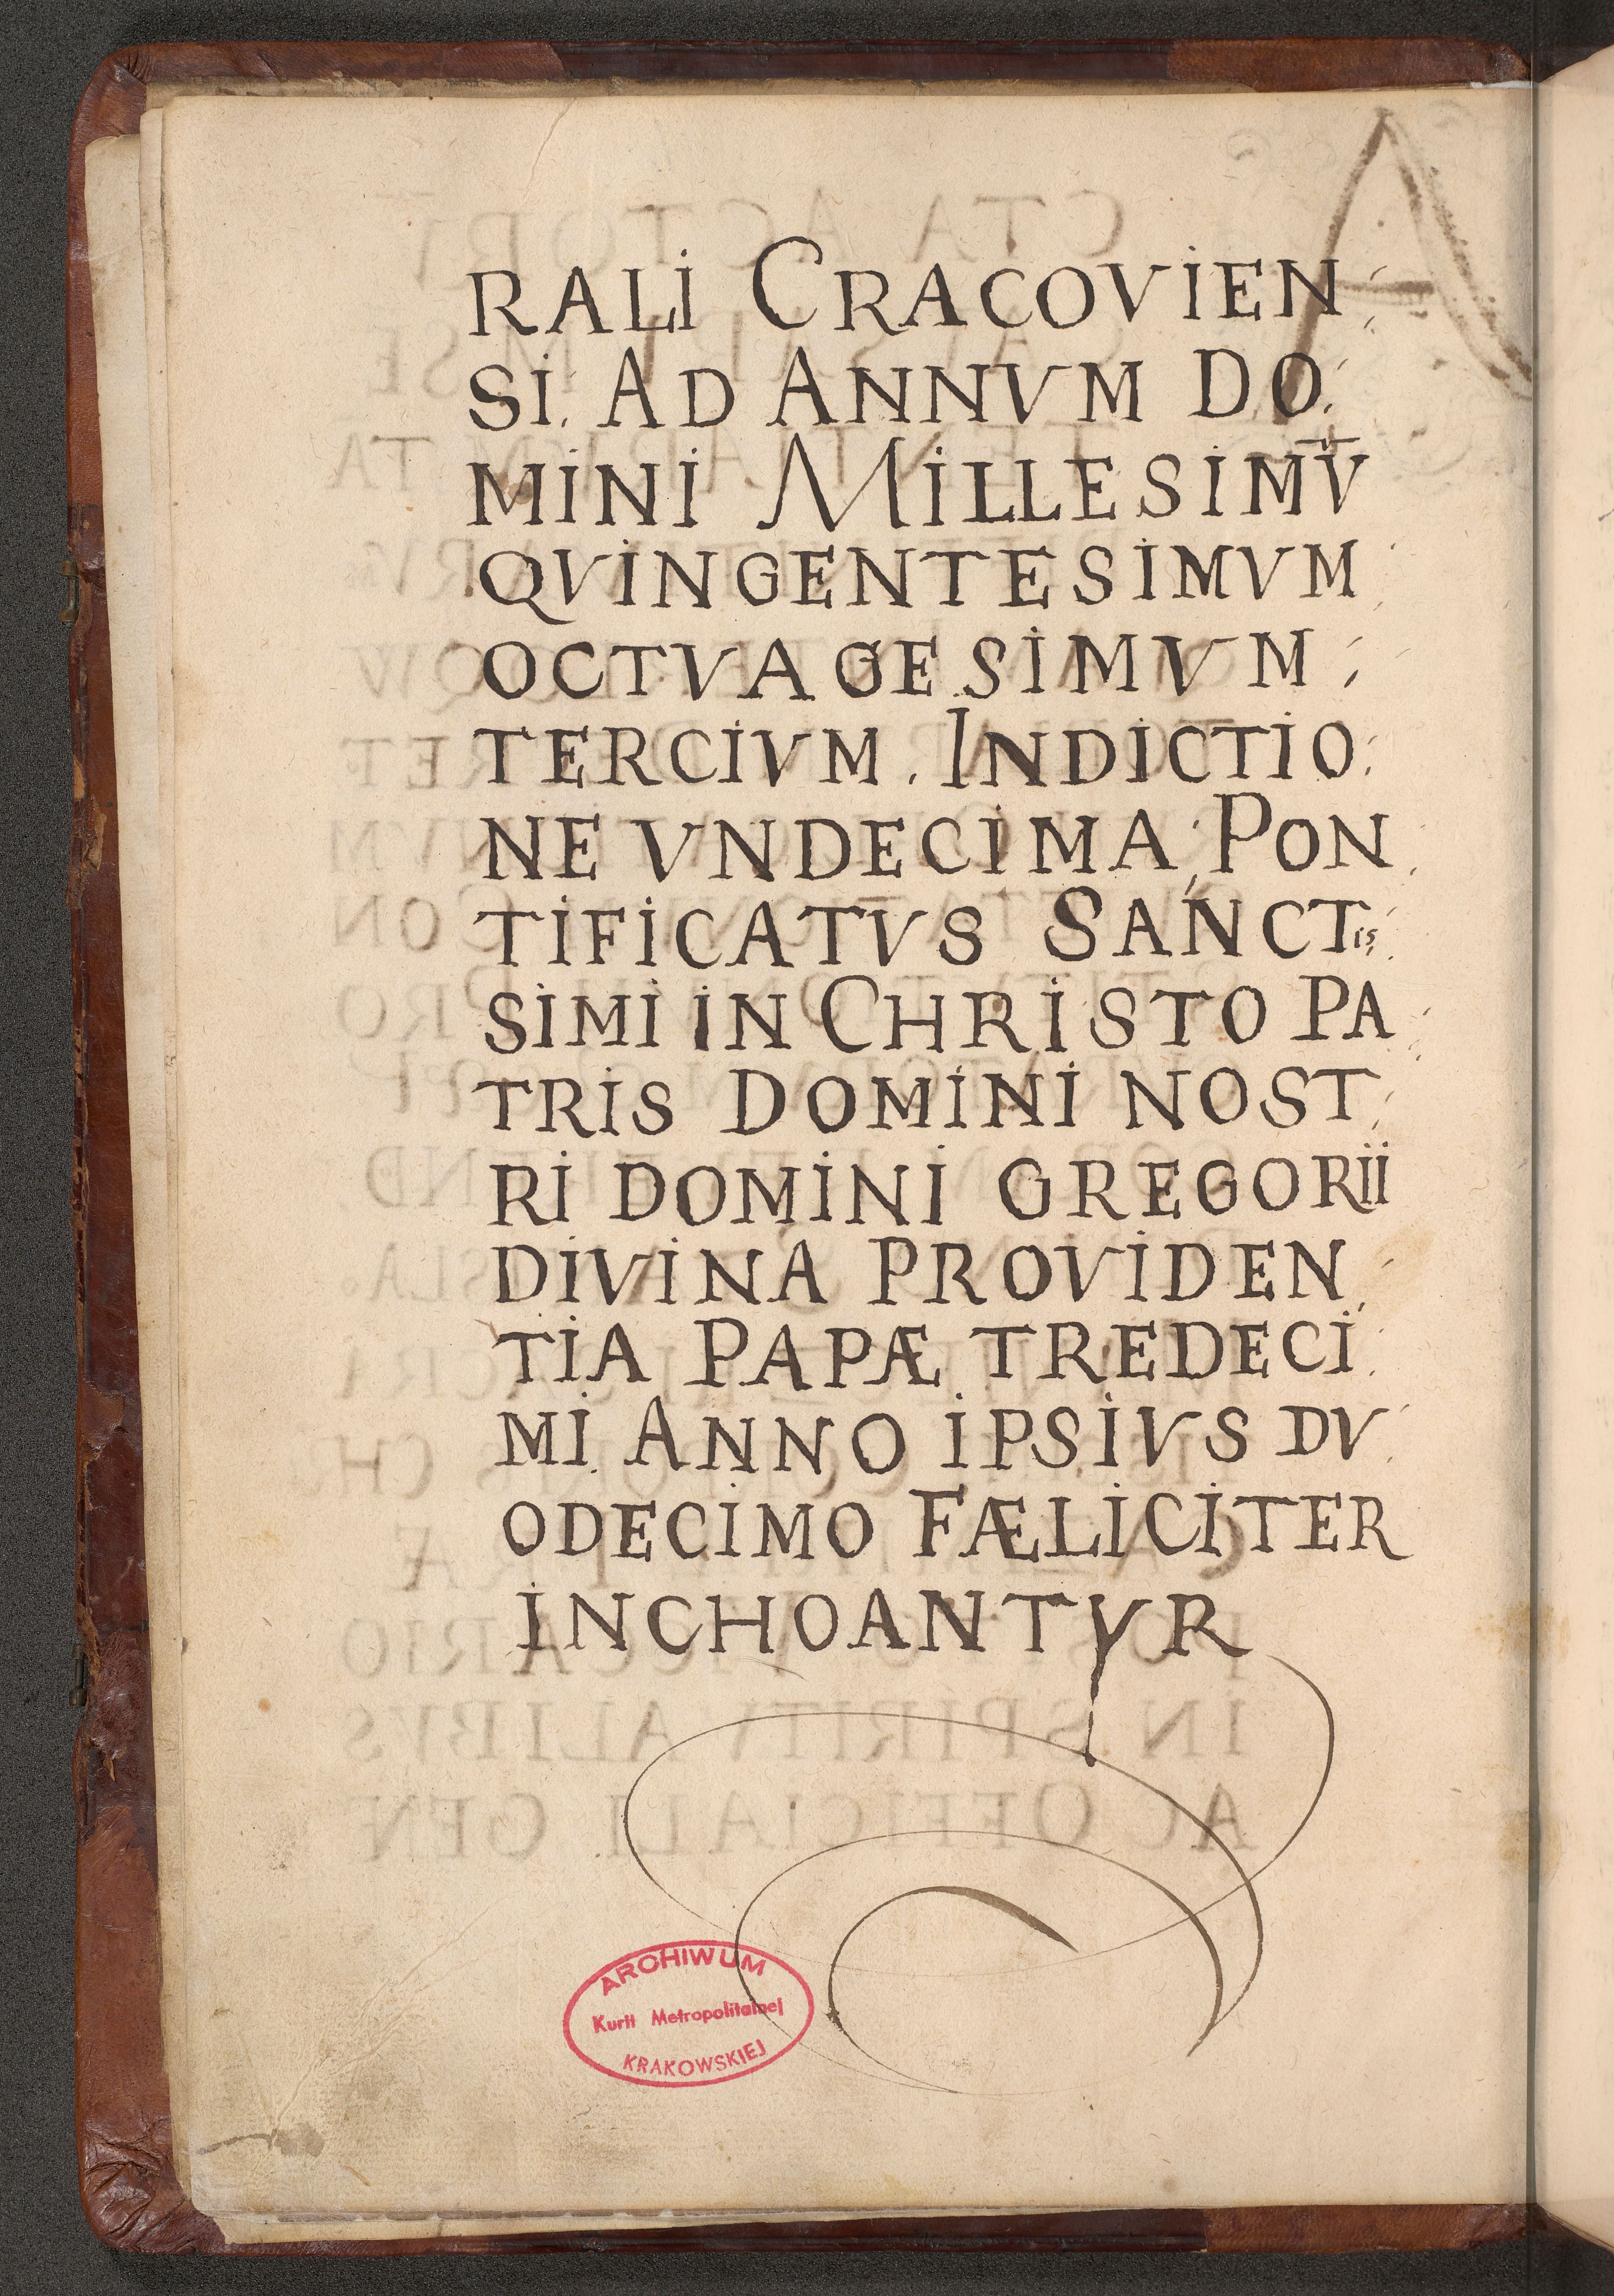 RALI CRACOVIEN:
SI. AD ANNVM DO:
MINI MILLESIMV̄
QVINGENTESIMVM
OCTVAGESIMVM
TERCIVM. INDICTIO:
NE VNDECIMA, PON
TIFICATVS SANCTIS:
SIMI IN CHRISTO PA
TRIS DOMINI NOST
RI DOMINI GREGORII
DIVINA PROVIDEN
TIA PAPÆ TREDECI
MI. ANNO IPSIVS DV
ODECIMO FÆLICITER
INCHOANTVR
ARCHIWUM
Kurii Metropolitalnej
KRAKOWSKIEJ